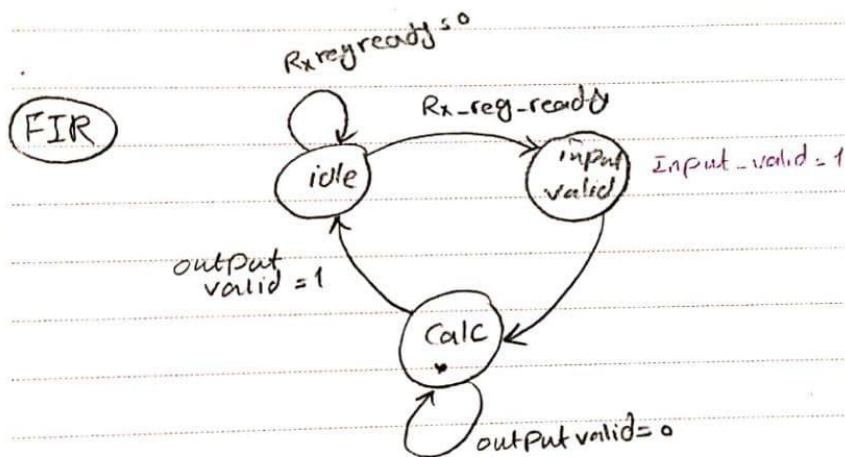 Rxregready=0
FIR
Rx_reg_ready
idle
input
valid
Input_valid=1
output
valid=1
Calc
outputvalid=0